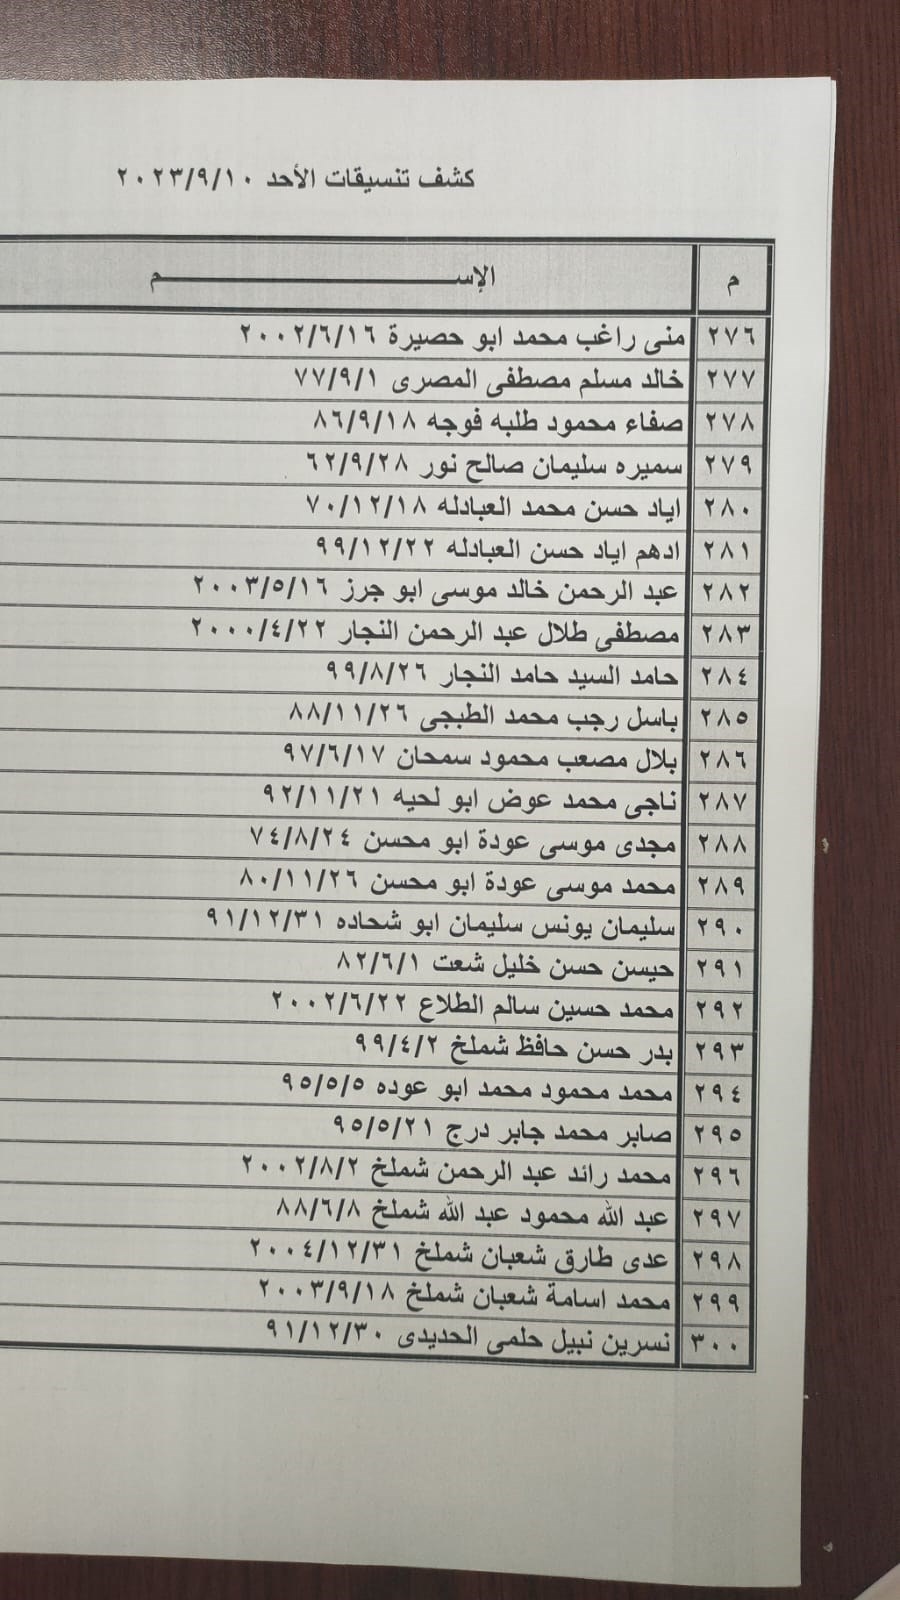 كشف تنسيقات الأحد ٢٠٢٣/٩/١٠
م الإســـــــــــــم
٢٧٦ منى راغب محمد ابو حصيرة ٢٠٠٢/٦/١٦
٢٧٧ خالد مسلم مصطفى المصرى ٧٧/٩/١
٢٧٨ صفاء محمود طلبه فوجه ٨٦/٩/١٨
٢٧٩ سميره سليمان صالح نور ٦٢/٩/٢٨
٢٨٠ اياد حسن محمد العبادله ٧٠/١٢/١٨
٢٨١ ادهم اياد حسن العبادله ٩٩/١٢/٢٢
٢٨٢ عبد الرحمن خالد موسى ابو جرز ٢٠٠٣/٥/١٦
٢٨٣ مصطفى طلال عبد الرحمن النجار ٢٠٠٠/٤/٢٢
٢٨٤ حامد السيد حامد النجار ٩٩/٨/٢٦
٢٨٥ باسل رجب محمد الطبجى ٨٨/١١/٢٦
٢٨٦ بلال مصعب محمود سمحان ٩٧/٦/١٧
٢٨٧ ناجى محمد عوض ابو لحيه ٩٢/١١/٢١
٢٨٨ مجدى موسى عودة ابو محسن ٧٤/٨/٢٤
٢٨٩ محمد موسى عودة ابو محسن ٨٠/١١/٢٦
٢٩٠ سليمان يونس سليمان ابو شحاده ٩١/١٢/٣١
٢٩١ حيسن حسن خليل شعت ٨٢/٦/١
٢٩٢ محمد حسين سالم الطلاع ٢٠٠٢/٦/٢٢
٢٩٣ بدر حسن حافظ شملخ ٩٩/٤/٢
٢٩٤ محمد محمود محمد ابو عوده ٩٥/٥/٥
٢٩٥ صابر محمد جابر درج ٩٥/٥/٢١
٢٩٦ محمد رائد عبد الرحمن شملخ ٢٠٠٢/٨/٢
٢٩٧ عبد الله محمود عبد الله شملخ ٨٨/٦/٨
٢٩٨ عدى طارق شعبان شملخ ٢٠٠٤/١٢/٣١
٢٩٩ محمد اسامة شعبان شملخ ٢٠٠٣/٩/١٨
٣٠٠ نسرين نبيل حلمى الحديدى ٩١/١٢/٣٠